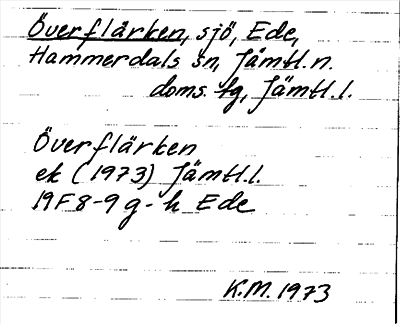 Överflärken, sjö, Ede,
Hammerdals sn, Jämtl. n.
doms. tg, Jämtl. l.
Överflärken
ek (1973) Jämtl. l.
19F 8-9 g-h Ede
K.M. 1973